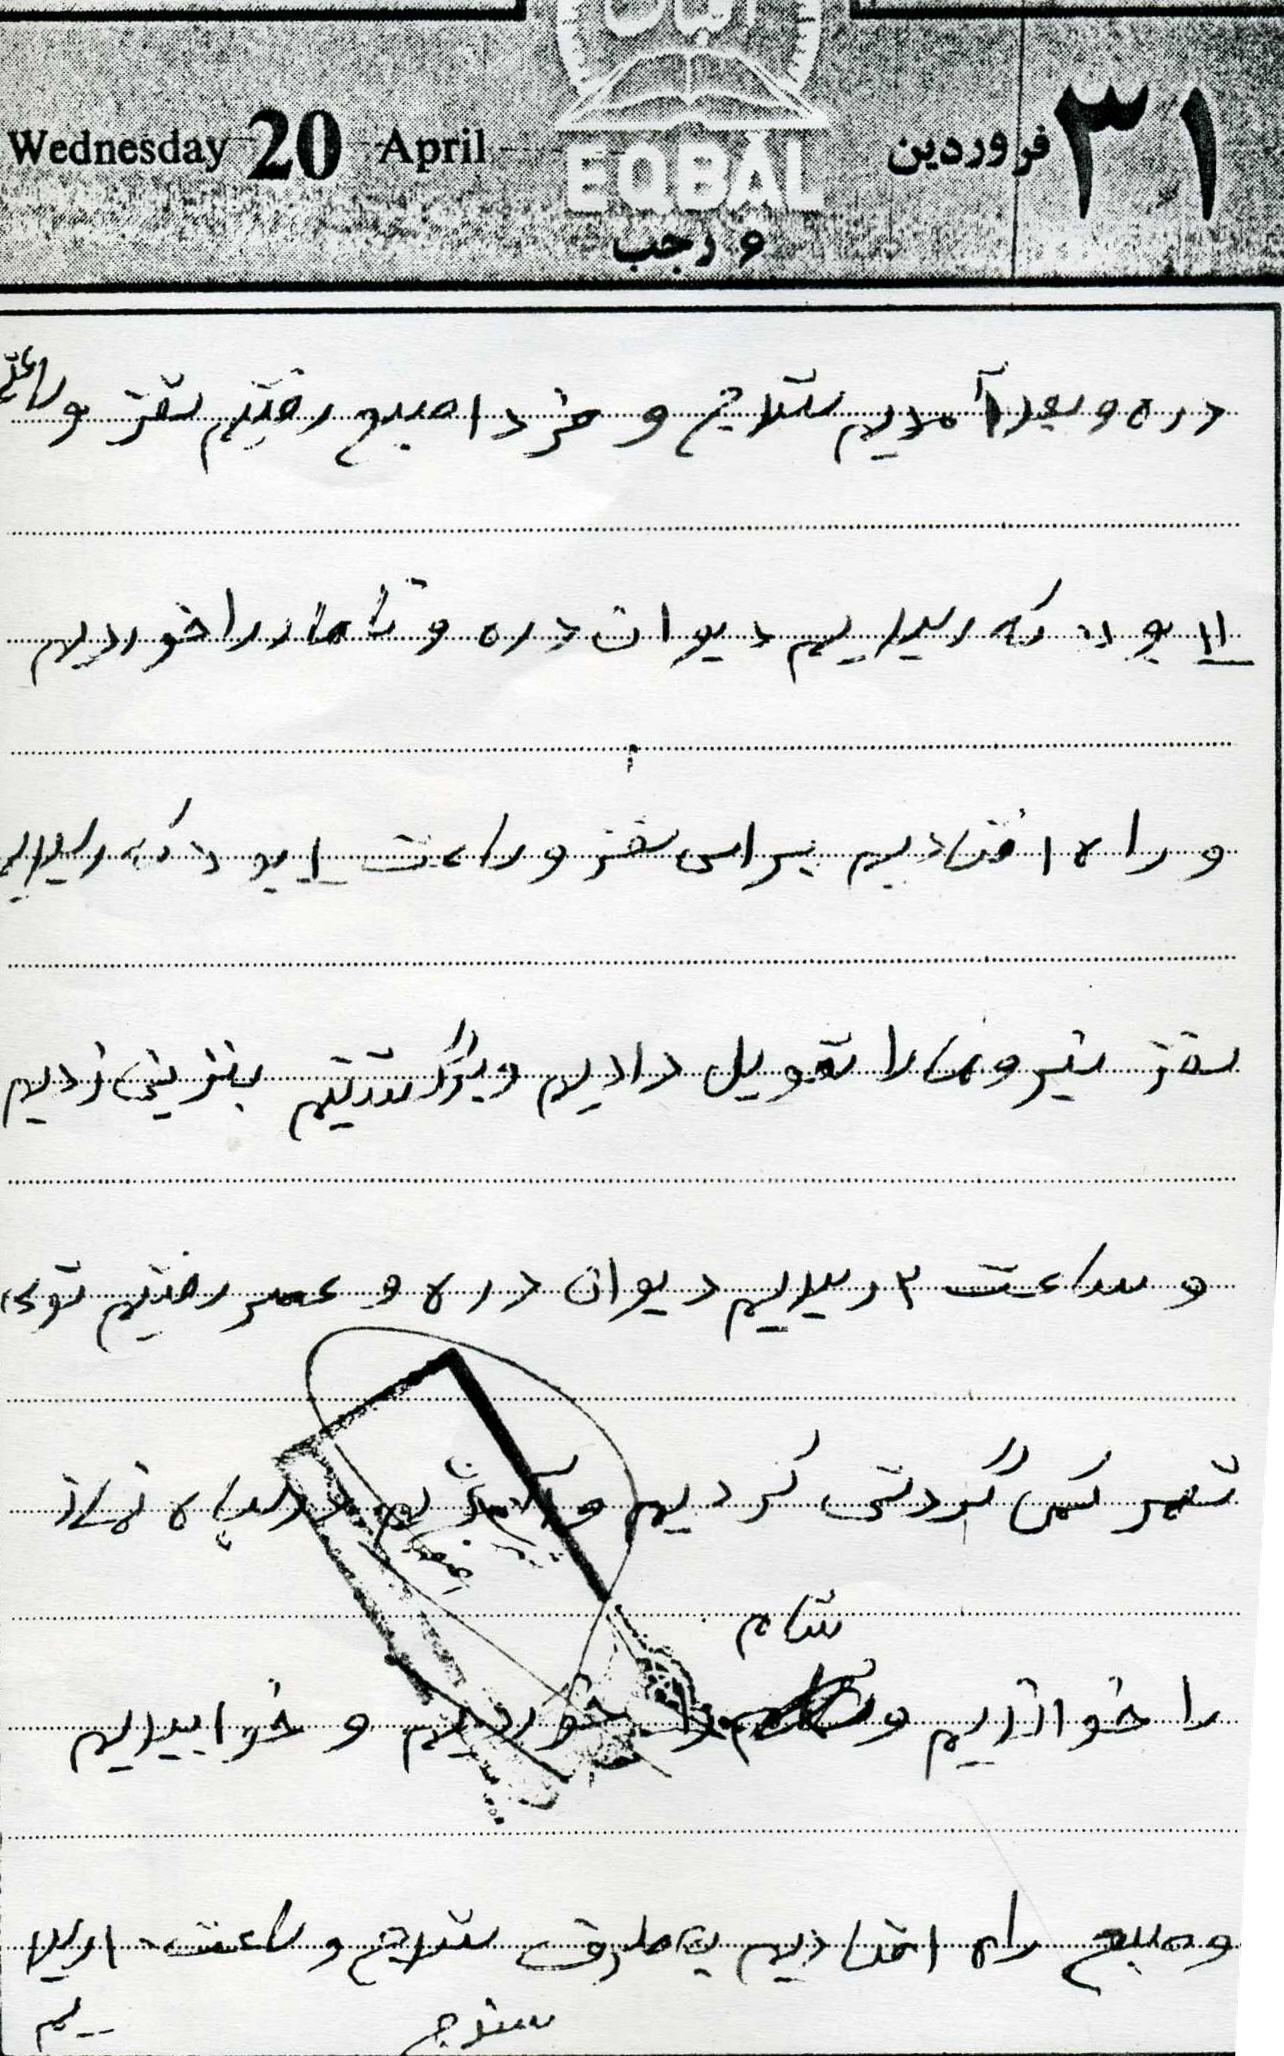 اقبال
Wednesday 20 April
EQBAL
۳۱ فروردین
۹ رجب
دره و بعد آمدیم سنندج و فردا صبح رفتیم سقز و ساعت
۱۱ بود که رسیدیم دیوان دره و ناهار را خوردیم
و راه افتادیم برای سقز و ساعت ۱ بود که رسیدیم
سقز نیروها را تحویل دادیم و برگشتیم بنزین زدیم
و ساعت ۳ رسیدیم دیوان دره و عصر رفتیم توی
شهر کمی گردش کردیم و آمدیم در سپاه نماز
شام
را خواندیم و را خوردیم و خوابیدیم
و صبح راه افتادیم به طرف سنندج و ساعت ۱۰ رسید
یم
سنندج